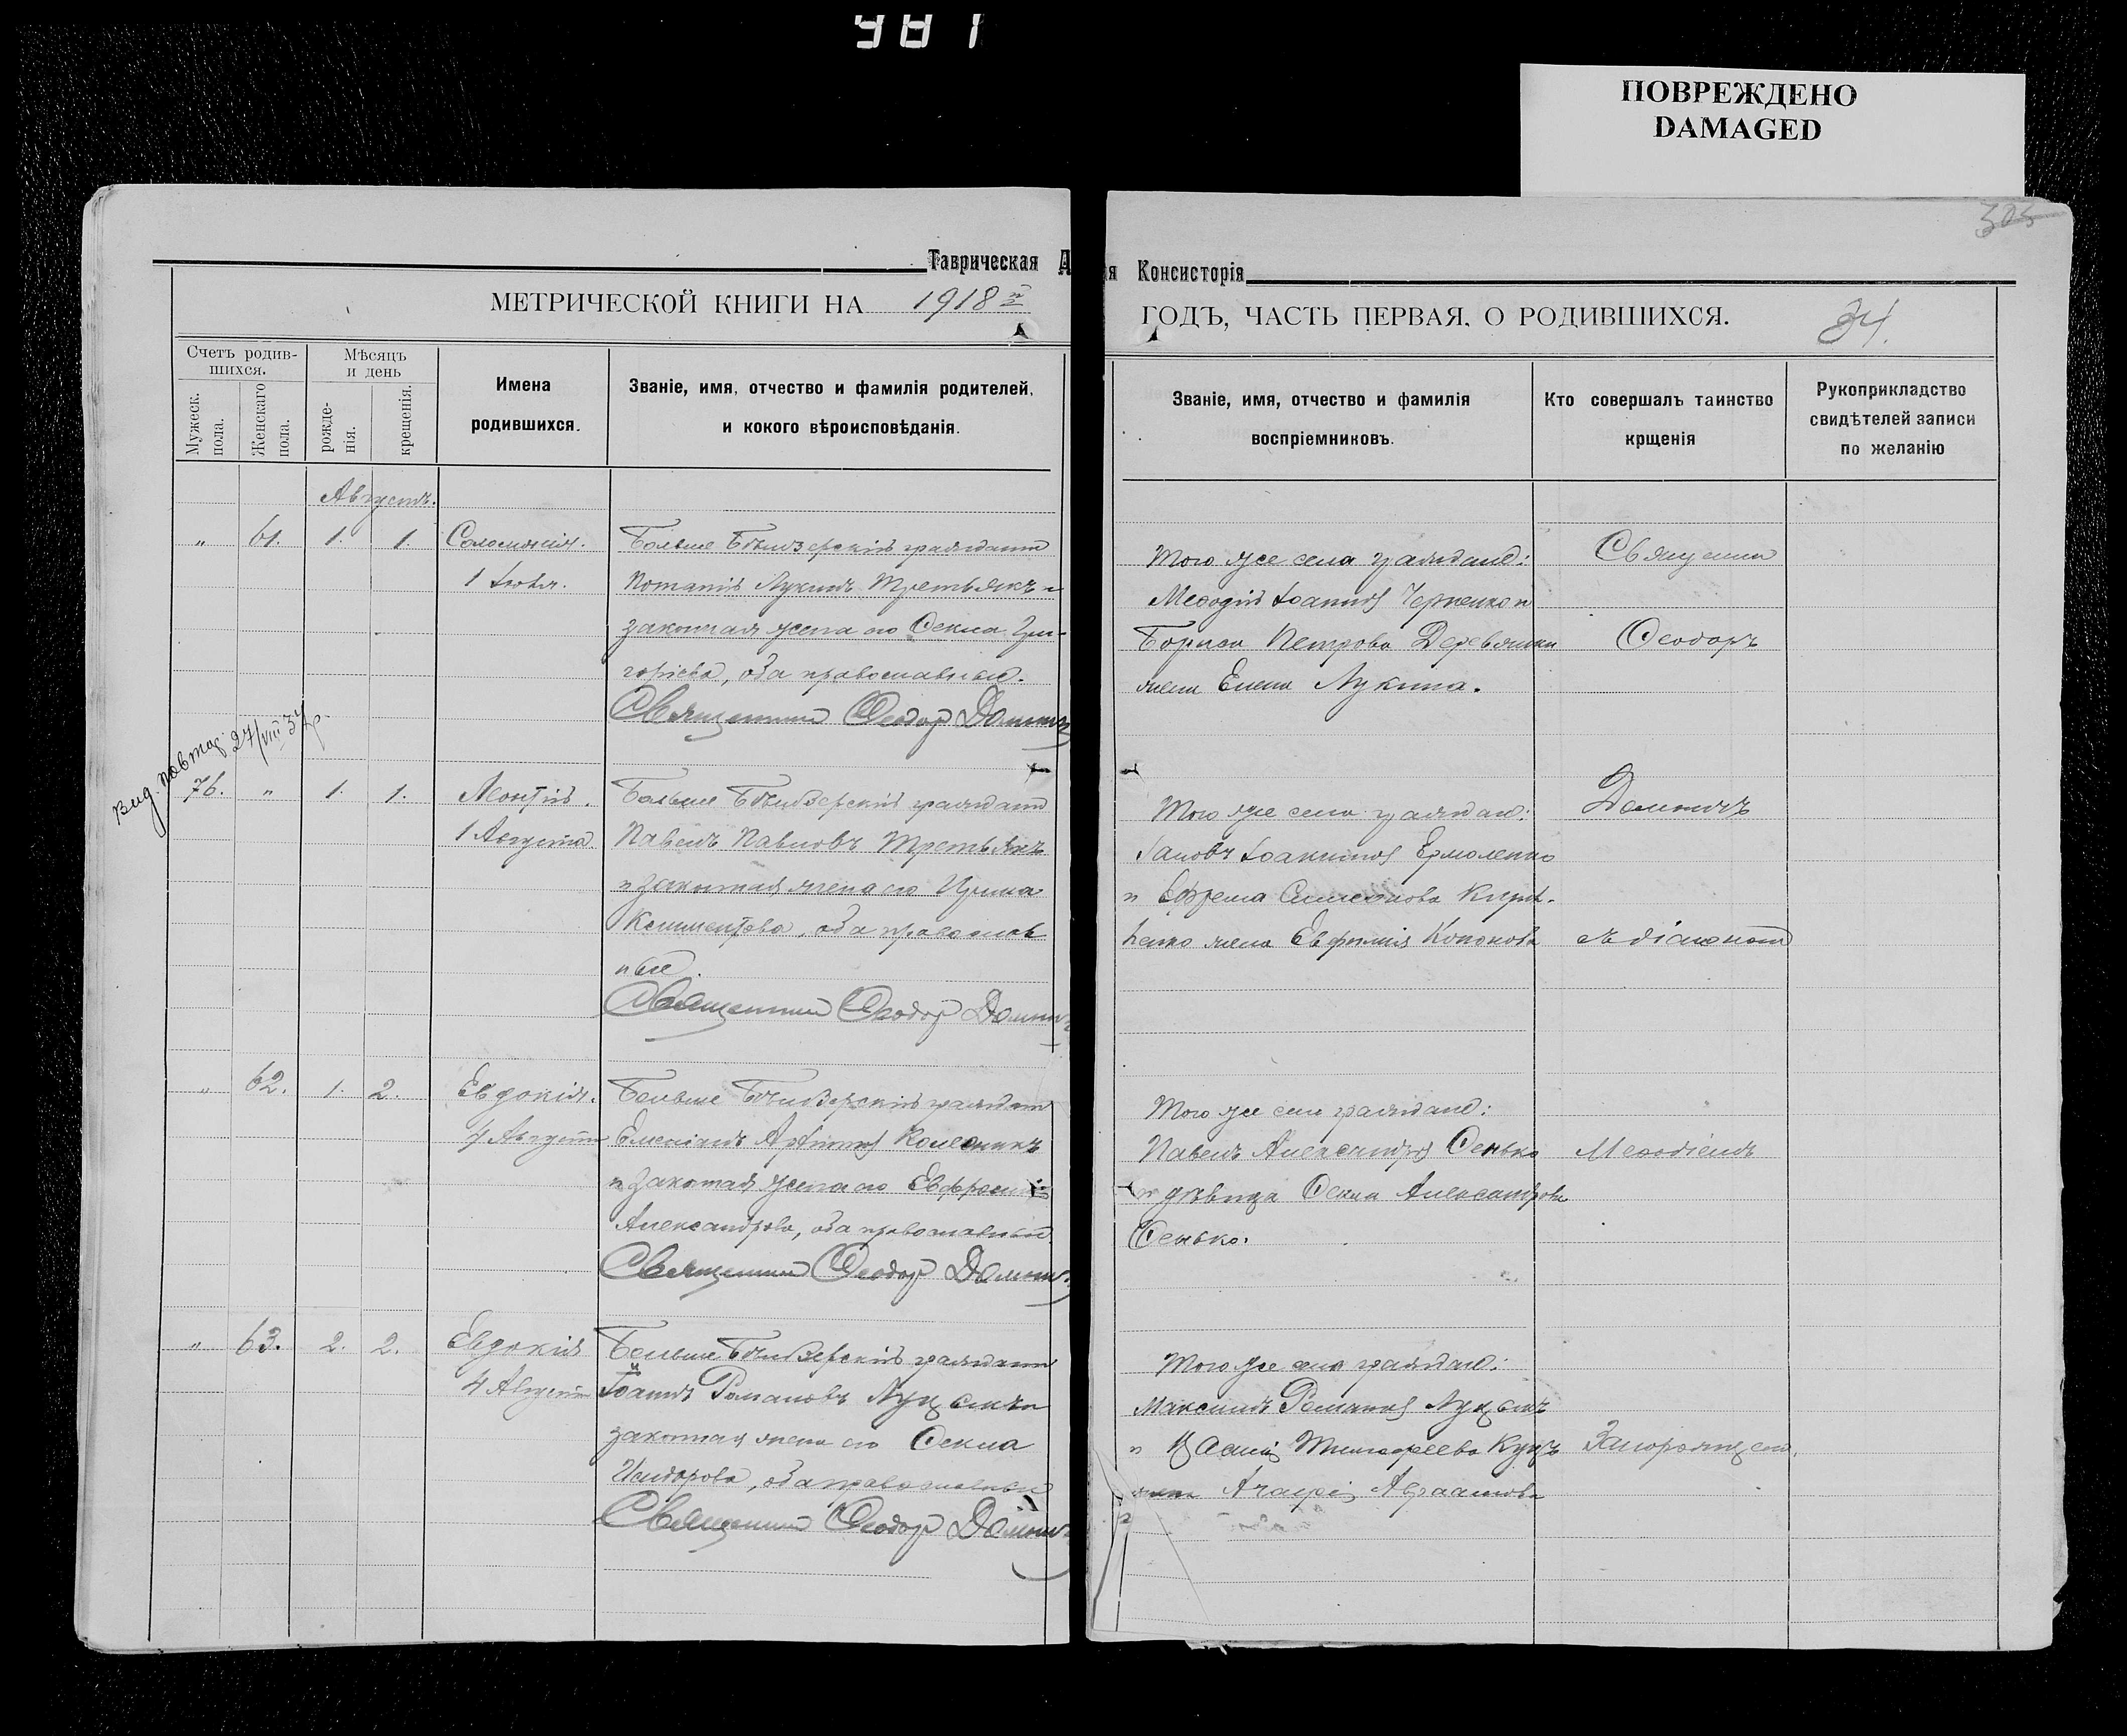 981
ПОВРЕЖДЕНО
DAMAGED
305
Таврическая
Консисторія
МЕТРИЧЕСКОЙ КНИГИ НА 1918 й
ГОДЪ, ЧАСТЬ ПЕРВАЯ, О РОДИВШИХСЯ.
34.
Счетъ родив-
шихся.
Мужеск.
пола.
Женскаго
пола.
Мѣсяцъ
и день
рожде-
нія.
крещенія.
Имена
родившихся.
Званіе, имя, отчество и фамилія родителей,
и кокого вѣроисповѣданія.
Званіе, имя, отчество и фамилія
воспріемниковъ.
Кто совершалъ таинство
крщенія
Рукоприкладство
свидѣтелей записи
по желанію
Августъ.
" 61. 1. 1. Соломонія.
1 Августа.
Больше Бѣлозерскій гражданинъ
Потапій Лукинъ Третьякъ и
законная жена его Ѳекла Гри-
горіева, оба православные.
Священникъ Ѳеодор
Того же села граждане:
Меѳодій Іоанновъ Черненко и
Бориса Петрова Деревянки
жена Елена Лукина.
Священникъ
Ѳеодоръ
Вид. повтор. 27/VIII 37 р.
76. " 1. 1. Леонтій.
1 Августа
Больше Бѣлозерскій гражданинъ
Павелъ Павловъ Третьякъ
и законная жена его Ирина
Климентова, оба православ
ные.
Священникъ Ѳеодор
Того же села граждане:
Іаковъ Іоакимовъ Ермоленко
и Ефрема Симеонова
жена Евфимія Кононова
съ діакономъ
" 62. 1. 2. Евдокія.
4 Августа
Больше Бѣлозерскій гражданинъ
Колесникъ
и законная жена его Евфросинія
Александрова, оба православные
Священникъ Ѳеодор
Того же села граждане:
Павелъ Александровъ Сенько
и дѣвица Ѳекла Александрова
Сенько.
Меѳодіемъ
" 63. 2. 2. Евдокія
4 Августа
Больше Бѣлозерскій гражданинъ
Іоаннъ Романовъ Луценко и
законная жена его Ѳекла
Исидорова, оба православные
Священникъ Ѳеодор
Того же села граждане:
Максимъ Романовъ
и Тимофеева
жена Авраамова
Запорожцемъ.